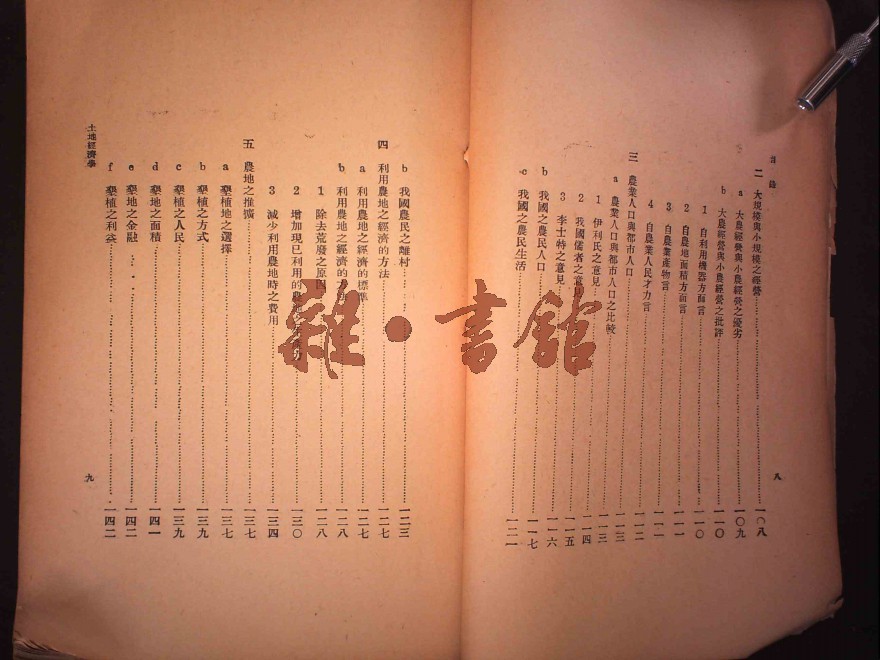 目錄
二 大規模與小規模之經營 一〇八
a 大農經營與小農經營之優劣 一〇九
b 大農經營與小農經營之批評 一一〇
1 自利用機器方面言 一一〇
2 自農地面積方面言 一一一
3 自農業產物言 一一一
4 自農業人民才力言 一一二
三 農業人口與都市人口 一一二
a 農業人口與都市人口之比較 一一三
1 伊利氏之意見 一一三
2 我國儒者之意見 一一四
3 李士特之意見 一一五
b 我國之農民人口 一一六
c 我國之農民生活 一一七
八
b 我國農民之離村 一二三
四 利用農地之經濟的方法 一二七
a 利用農地之經濟的標準 一二七
b 利用農地之經濟的方 一二八
1 除去荒廢之原因 一二八
2 增加現已利用的農 一三〇
3 減少利用農地時之費用 一三四
五 農地之推擴 一三七
a 墾植地之選擇 一三七
b 墾植之方式 一三九
c 墾植之人民 一三九
d 墾地之面積 一四一
e 墾地之金融 一四二
f 墾植之利益 一四二
土地經濟學
九
雜·書館